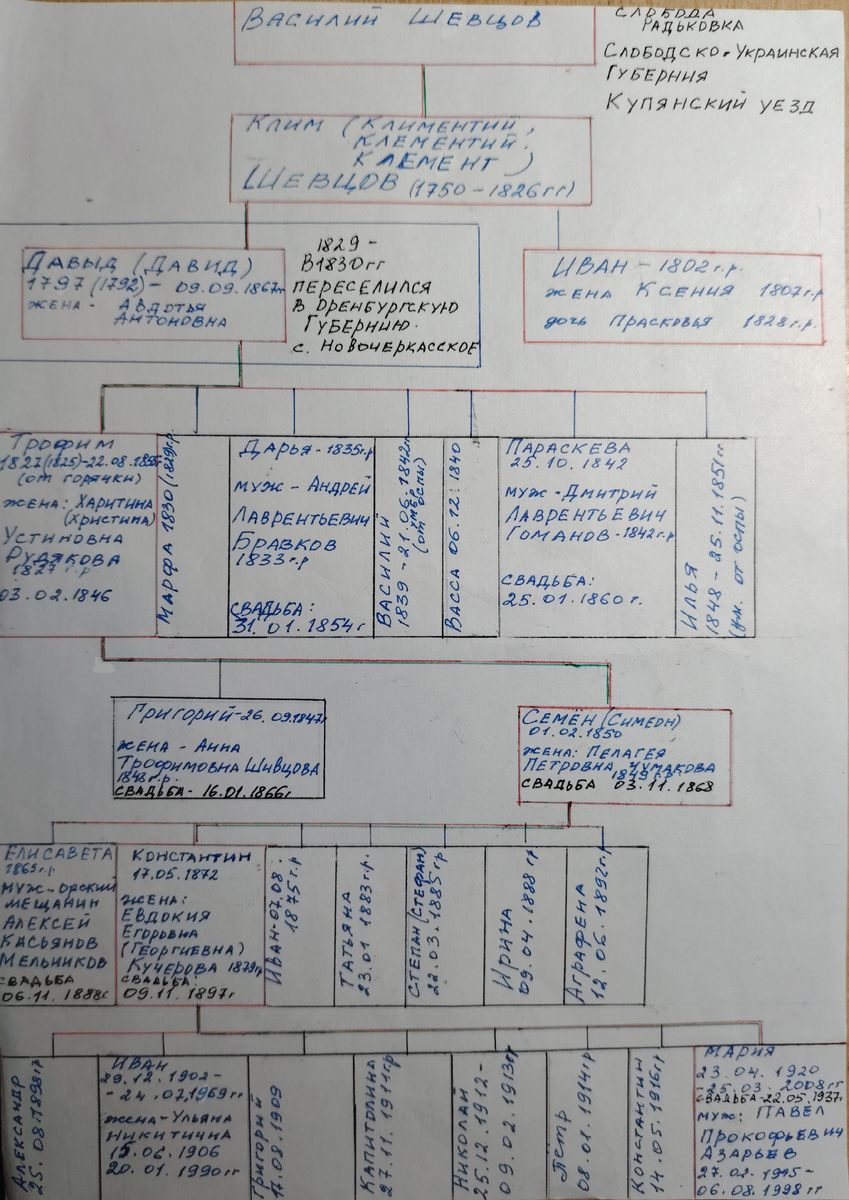 Василий Шевцов
Слобода
Радьковка
Слободско-Украинская
Губерния
Купянский уезд
Клим (Климентий,
Клементий.
Клемент)
Шевцов (1750-1826гг)
Давыд (Давид)
1797 (1792) - 09.09.1867г
жена - Авдотья
Антоновна
1829 -
В 1830гг
переселился
в Оренбургскую
Губернию.
с. Новочеркасское
Иван - 1802 г.р.
жена Ксения 1807 г.р
дочь Прасковья 1828 г.р.
Трофим
1827 (1825) - 22.08.
(от горячки)
жена: Харитина
(Христина)
Устиновна
Рудякова
1827 г.р
03.02.1846
Марфа 1830 (1829 г.р.
Дарья - 1835 г.р
муж - Андрей
Лаврентьевич
Бравков
1833 г.р
Свадьба:
31.01.1854 г
Василий
1839 - 21.06.1842 г
умер
(от оспы)
Васса 06.12.1840
Параскева
25.10.1842
муж - Дмитрий
Лаврентьевич
Гоманов - 1842 г.р
Свадьба:
25.01.1860 г.
Илья
1848 - 25.11.1851 гг
(ум. от оспы)
Григорий - 26.09.1847г
жена - Анна
Трофимовна Шивцова
1848 г.р.
Свадьба - 16.01.1866г
Семён (Симеон)
01.02.1850
жена: Пелагея
Петровна Чумакова
1849 г.р
Свадьба 03.11.1868
Елисавета
1869 г.р
муж - орский
мещанин
Алексей
Касьянов
Мельников
Свадьба
06.11.1888г
Константин
17.05.1872
жена:
Евдокия
Егоровна
(Георгиевна)
Кучерова 1879 г.р
Свадьба:
09.11.1897 г
Иван - 07.08.
1875 г.р
Татьяна
23.01 1883 г.р.
Степан (Стефан)
22.03.1885 г.р
Ирина
09.04.1888 г.р
Аграфена
12.06.1892 г.р
Александр
25.08.1898 г.р
Иван
29.12.1902 -
- 24.07.1969 гг
жена - Ульяна
Никитична
15.06.1906
20.01.1990 гг
Григорий
17.08.1909
Капитолина
27.11.1911 г.р
Николай
25.12.1912 -
09.02.1913 гг
Петр
08.01.1914 г.р
Константин
14.05.1916 г.р
Мария
23.04.1920
- 25.03.2008 гг
Свадьба - 22.05.1937г
муж: Павел
Прокофьевич
Азарьев
27.02.1915 -
06.08.1998 гг